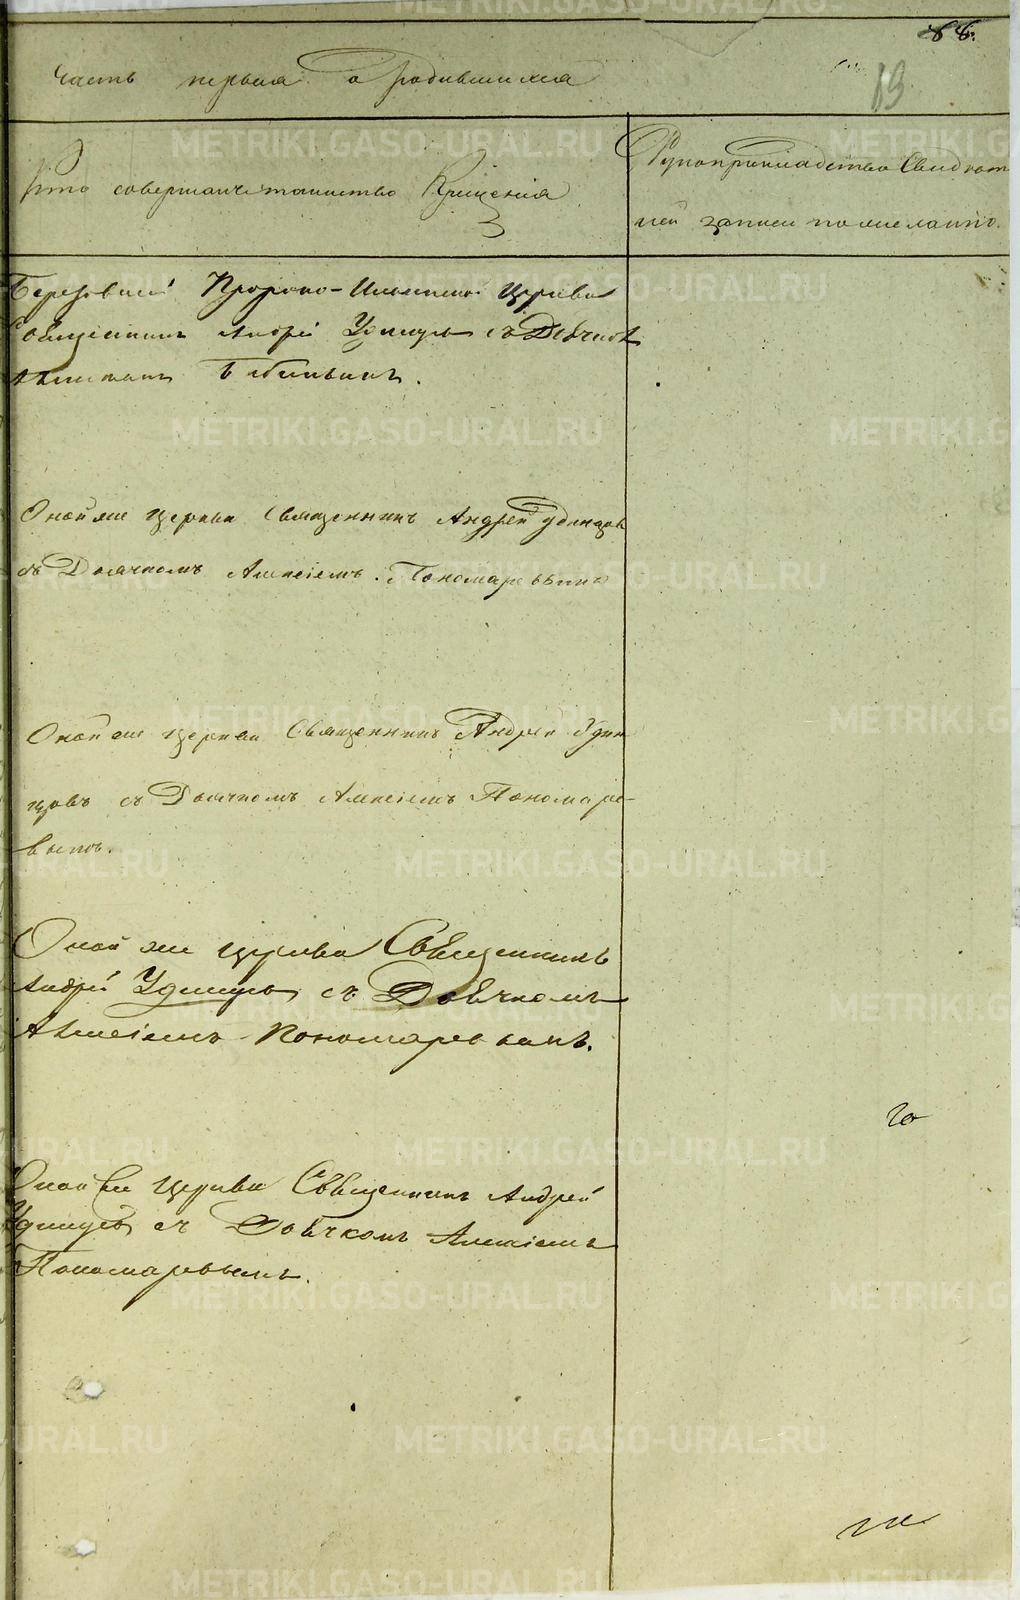 88.
19
Часть первая о родившихся
Кто совершалъ таинство Крещенія
Рукоприкладство свидѣте
лей записи по желанію.
Березовской Пророко-Ильинской церкви
Священникъ Андрей Удинцовъ съ Дьячком
Онойже церкви Священникъ Андрей Удинцовъ
съ Дьячкомъ Алексіемъ Пономаревымъ
Онойже церкви Священникъ Андрей Удин
цовъ съ Дьячкомъ Алексіемъ Пономаре-
вымъ.
Оной же церкви Священникъ
Андрей Удинцовъ съ Дьячкомъ
Алексіемъ Пономаревымъ.
Оной же церкви Священникъ Андрей
Удинцовъ съ Дьячкомъ Алексіемъ
Пономаревымъ.
METRIKI.GASO-URAL.RU